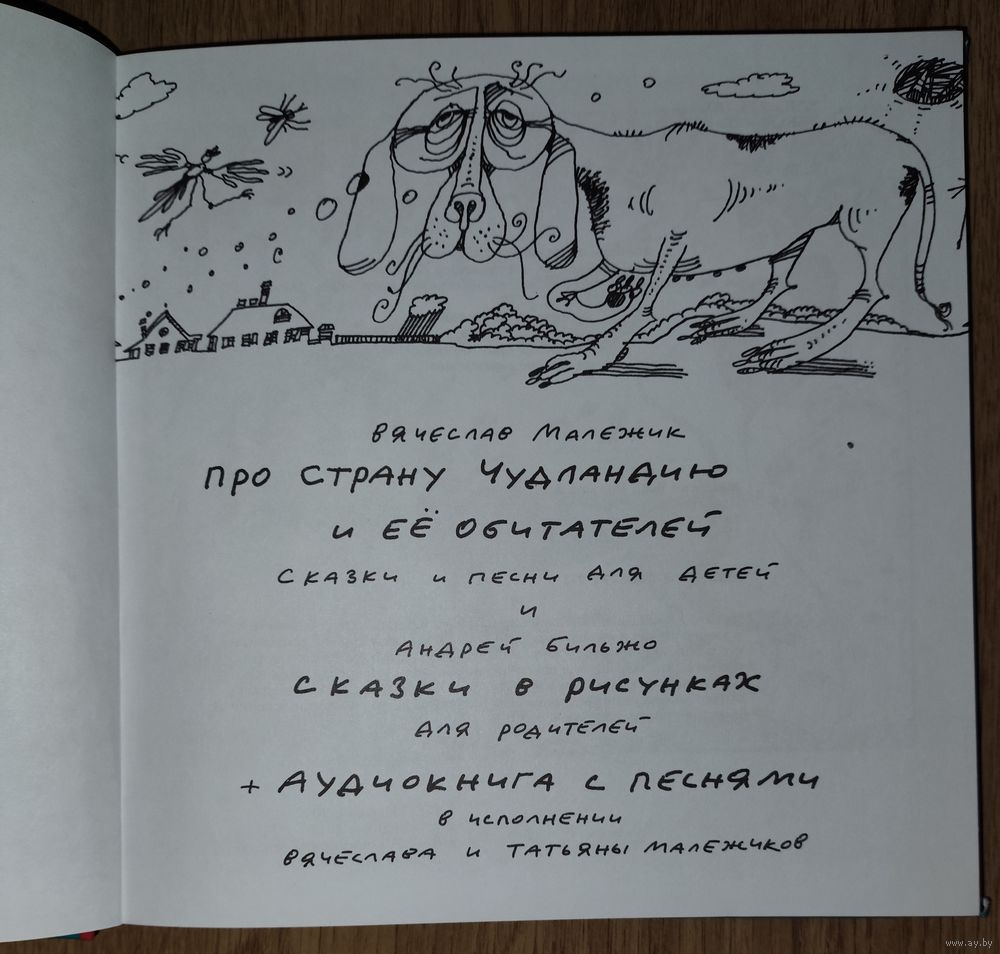 Вячеслав Малежик
про страну Чудландию
и её обитателей
Сказки и песни для детей
и
Андрей Бильжо
сказки в рисунках
для родителей
+ Аудиокнига с песнями
в исполнении
Вячеслава и Татьяны Малежиков
www.ay.by